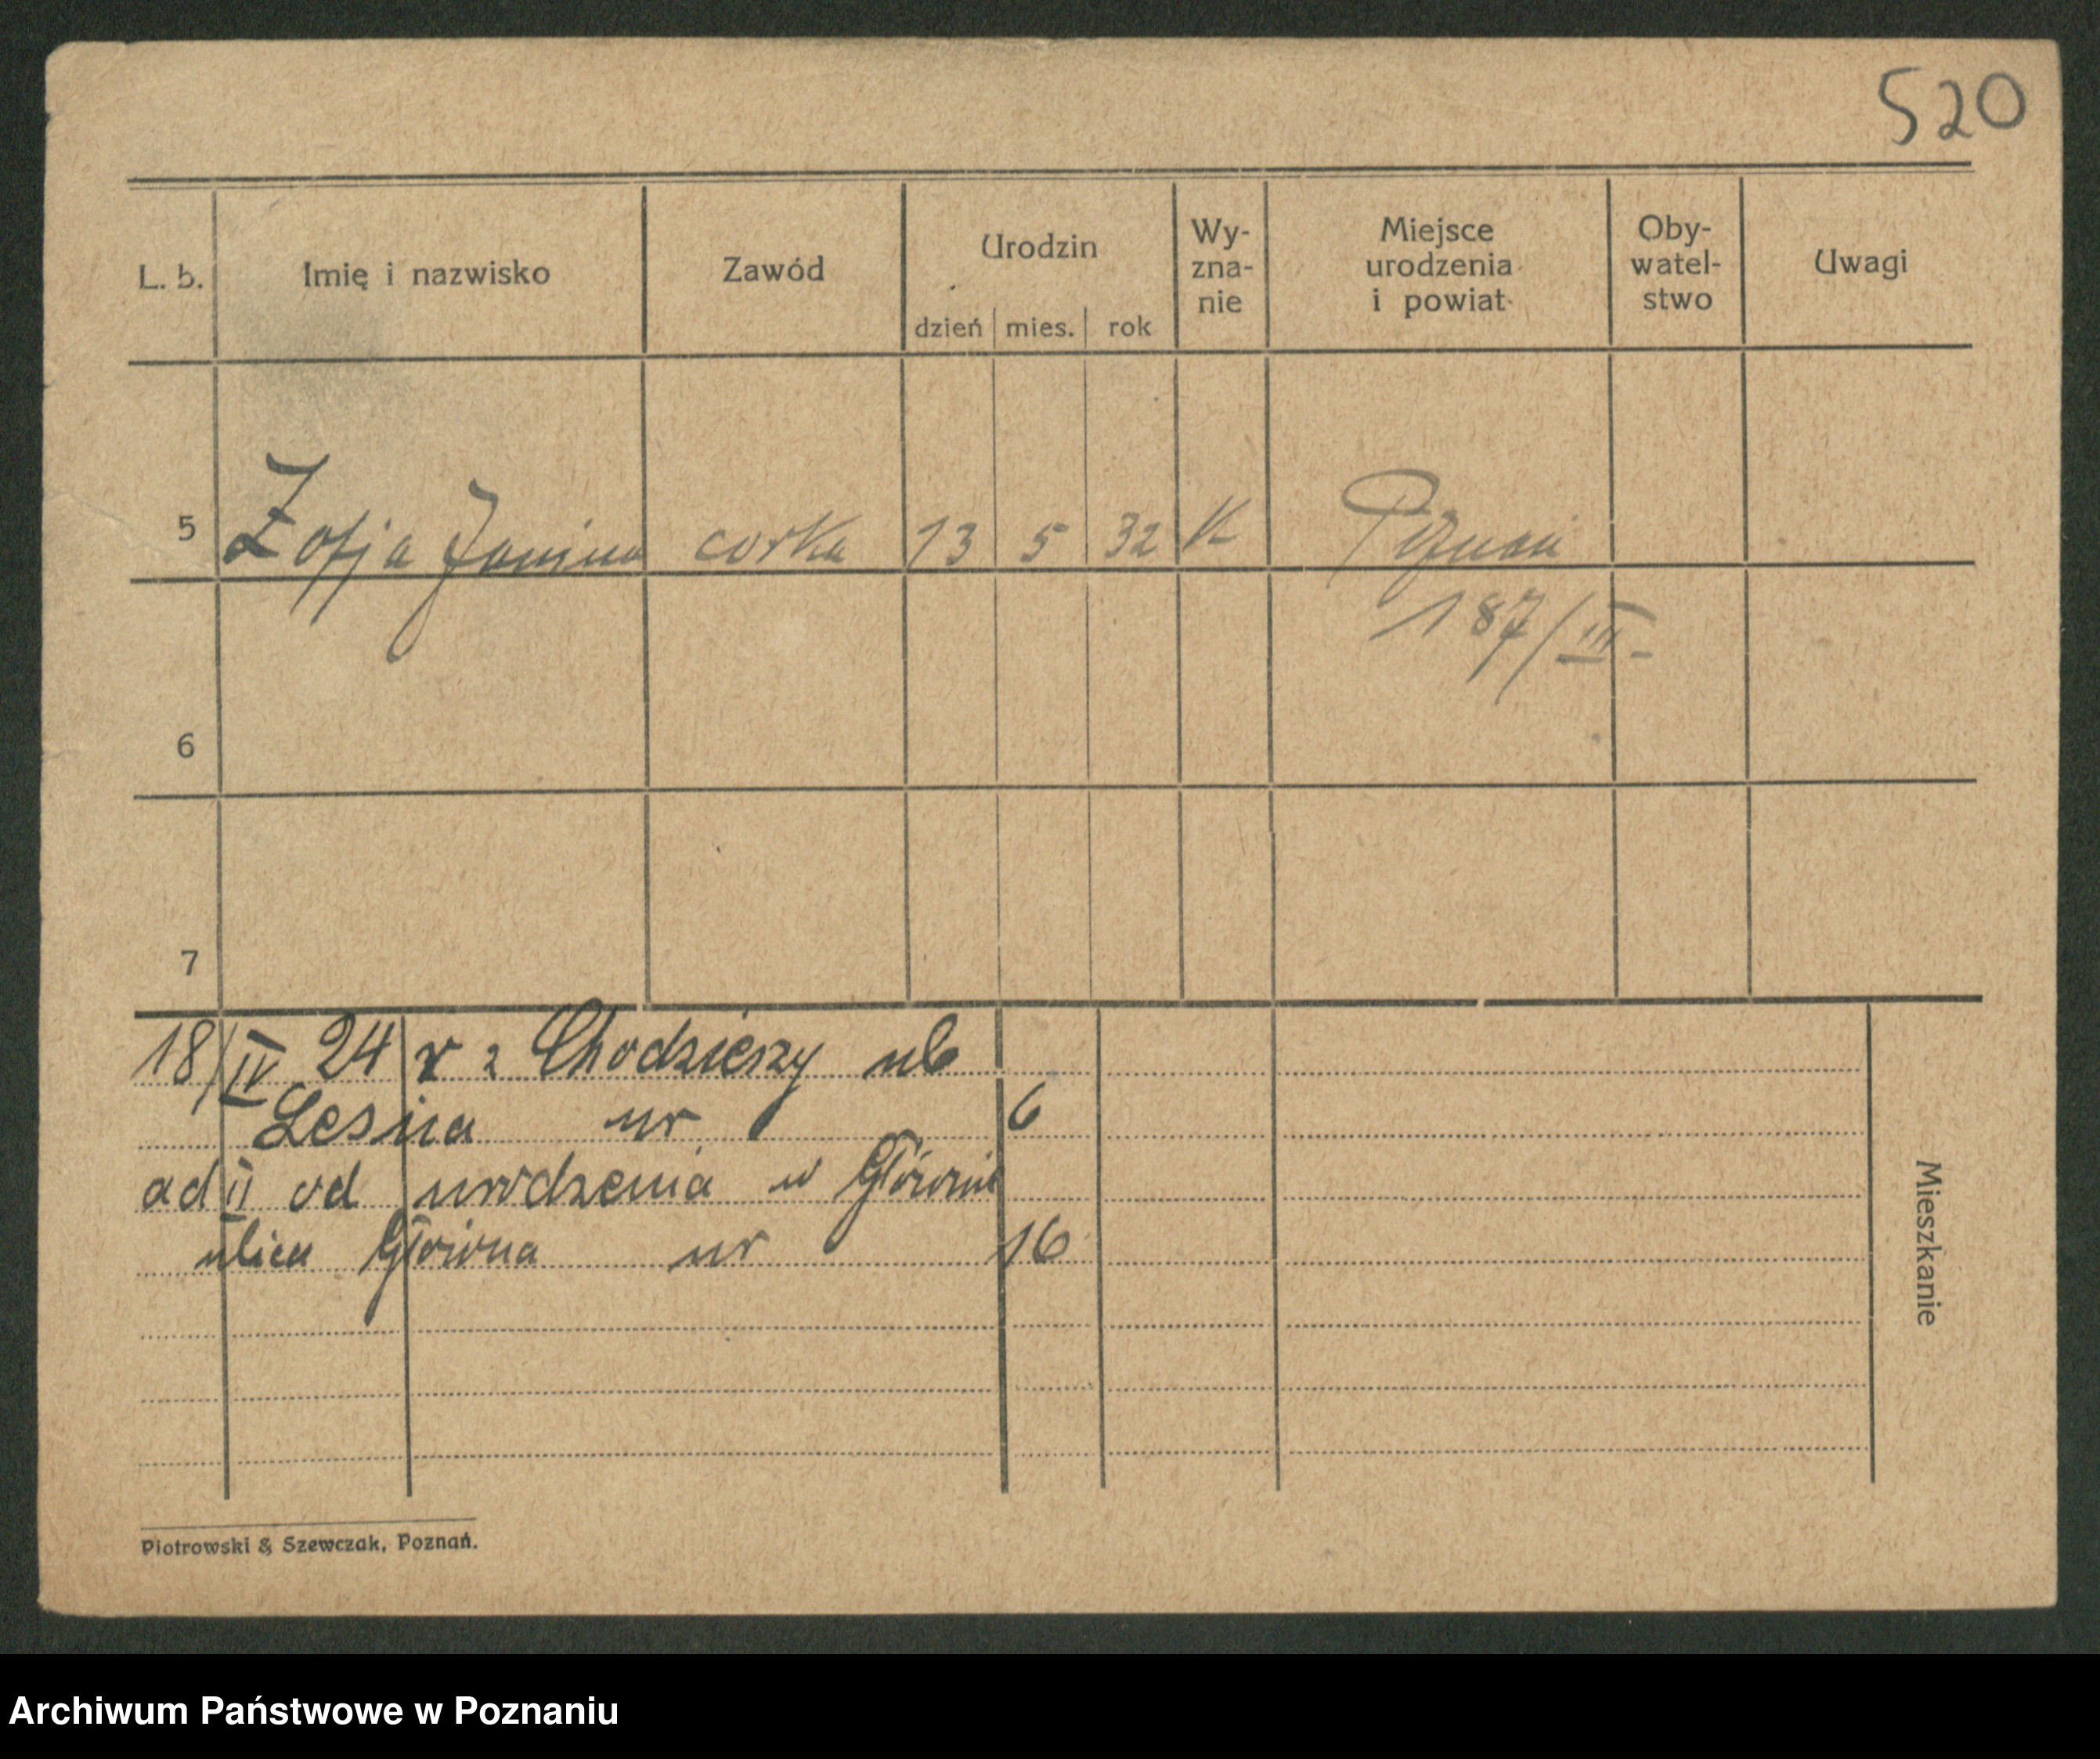 520
L. b. Imię i nazwisko Zawód Urodzin dzień mies. rok Wy-zna-nie Miejsce urodzenia i powiat Oby-watel-stwo Uwagi
5 Zofja Janina corka 13 5 32 K Poznań
187/III-
6
7
18/IV 24 r z Chodzieży ul
Lesna nr 6
ad II od urodzenia w Głównie
ulica Główna nr 16
Mieszkanie
Piotrowski & Szewczak, Poznań.
Archiwum Państwowe w Poznaniu